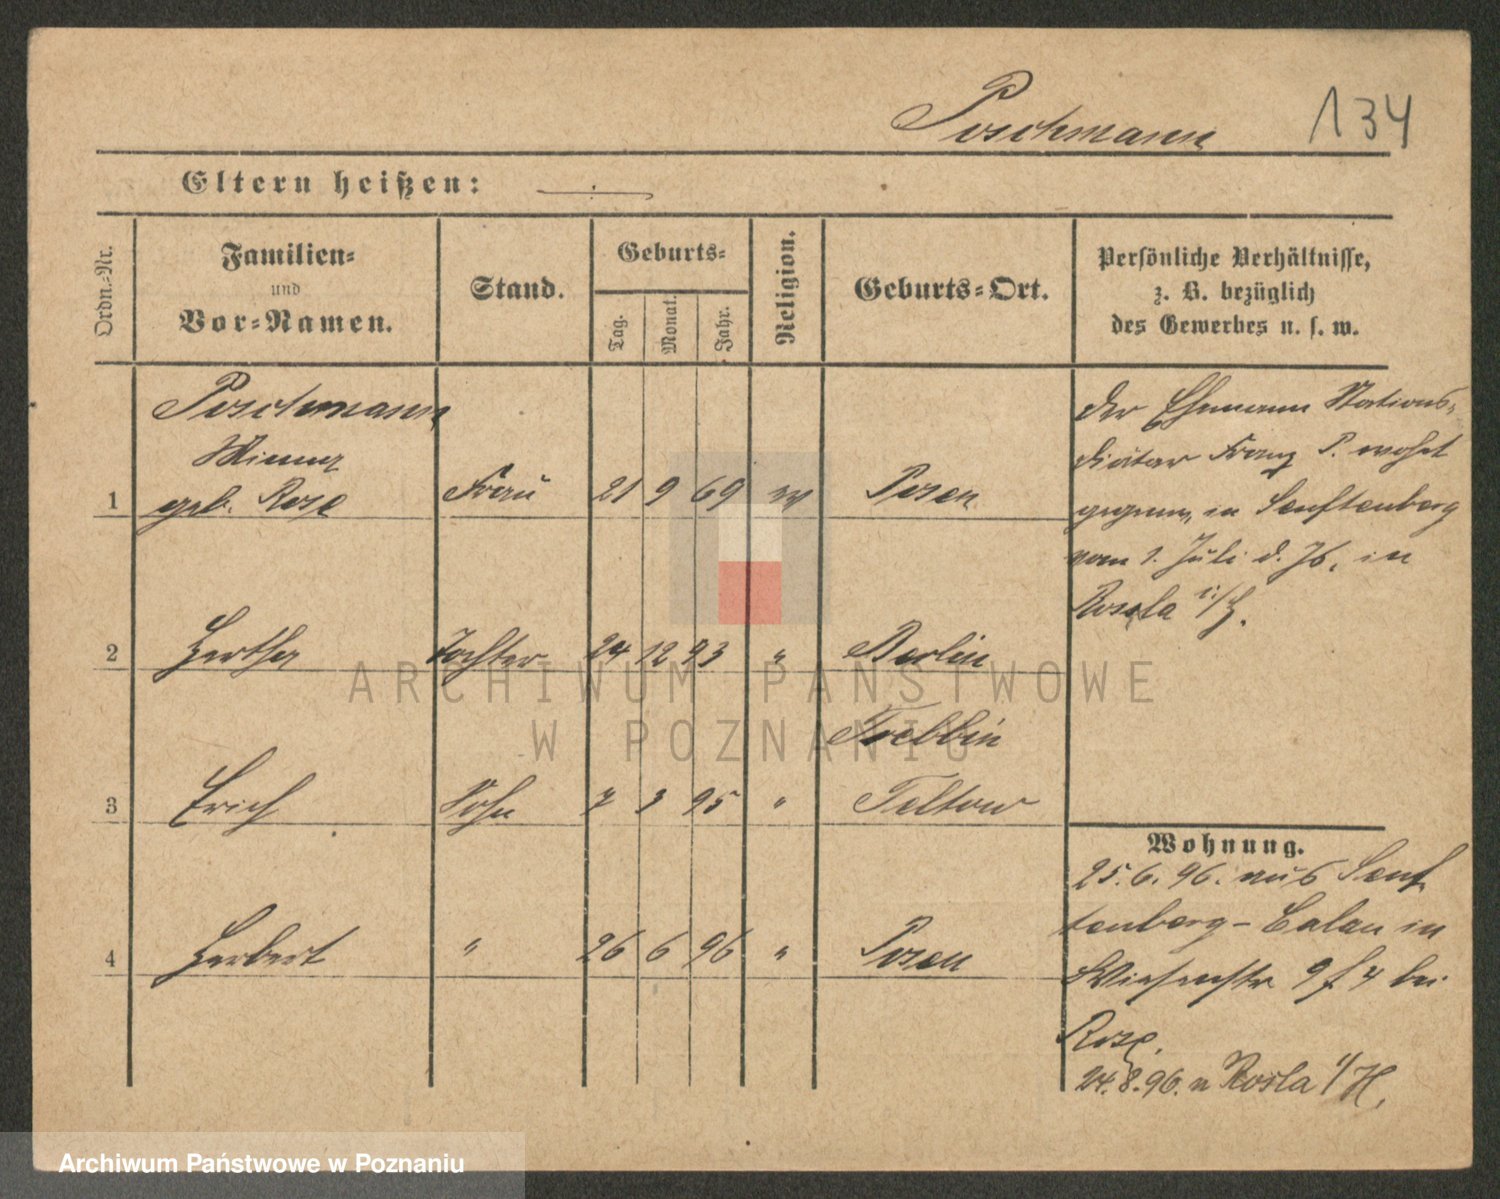 Poschmann 134
Eltern heißen:
Ordn.-Nr.
Familien-
und
Vor-Namen.
Stand.
Geburts-
Tag.
Monat.
Jahr.
Religion.
Geburts-Ort.
Persönliche Verhältnisse,
z. B. bezüglich
des Gewerbes u. s. w.
Poschmann
Minna
1 geb. Rose Frau 21 9 69 ev Posen
der Ehemann Stations-
diätar Franz P. wohnt
gegenw. in Senftenberg
vom 1. Juli d. Js. in
Rosla i/H.
2 Hertha Tochter 24 12 93 " Berlin
Trebbin
3 Erich Sohn 7 3 95 " Teltow
4 Herbert " 26 6 96 " Posen
Wohnung.
25.6.96. aus Senf
tenberg - Calau in
Wiesenstr 9 f 4 bei
Rose.
24.8.96. n Rosla i/H.
ARCHIWUM PAŃSTWOWE
W POZNANIU
Archiwum Państwowe w Poznaniu